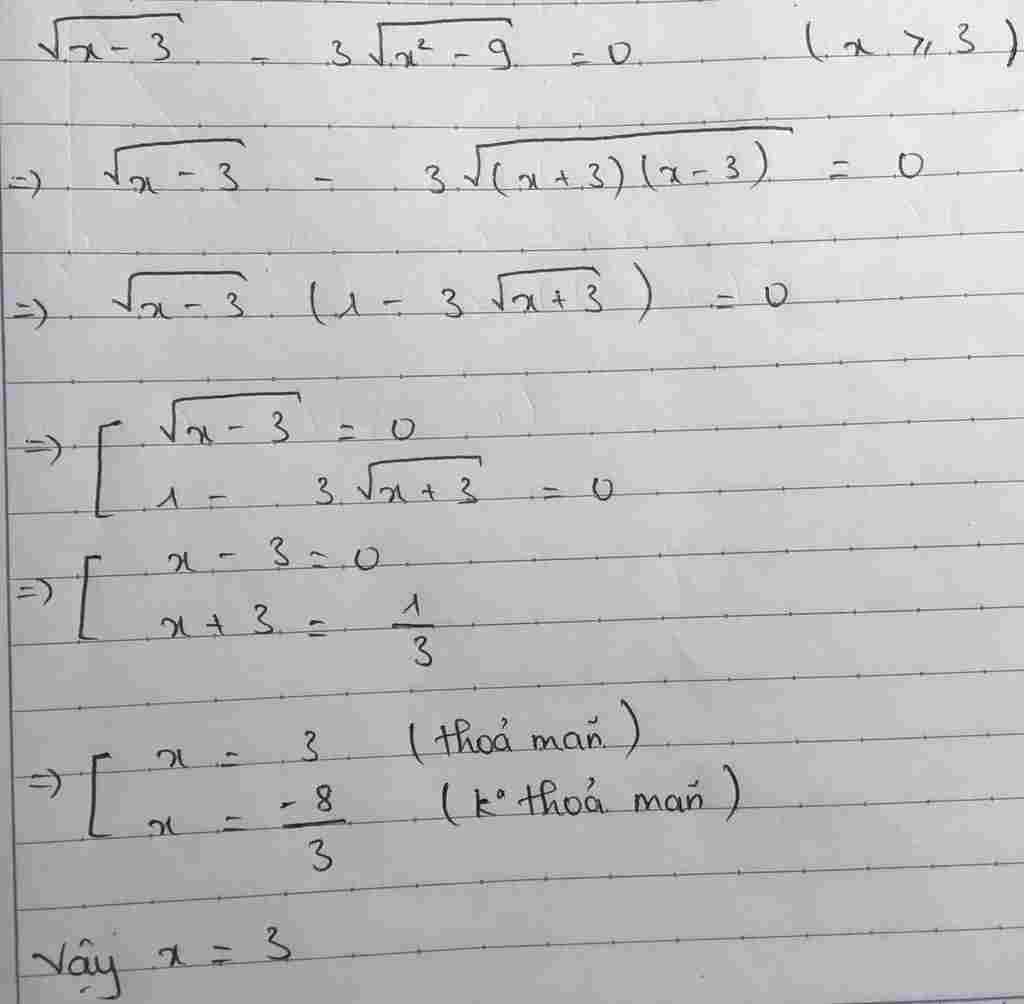 √(x - 3) - 3√(x² - 9) = 0 (x ⩾ 3)
=> √(x - 3) - 3√((x + 3)(x - 3)) = 0
=> √(x - 3) (1 - 3√(x + 3)) = 0
=> [ √(x - 3) = 0
1 - 3√(x + 3) = 0
=> [ x - 3 = 0
x + 3 = 1/3
=> [ x = 3 (thoả mãn)
x = -8/3 (k° thoả mãn)
Vậy x = 3